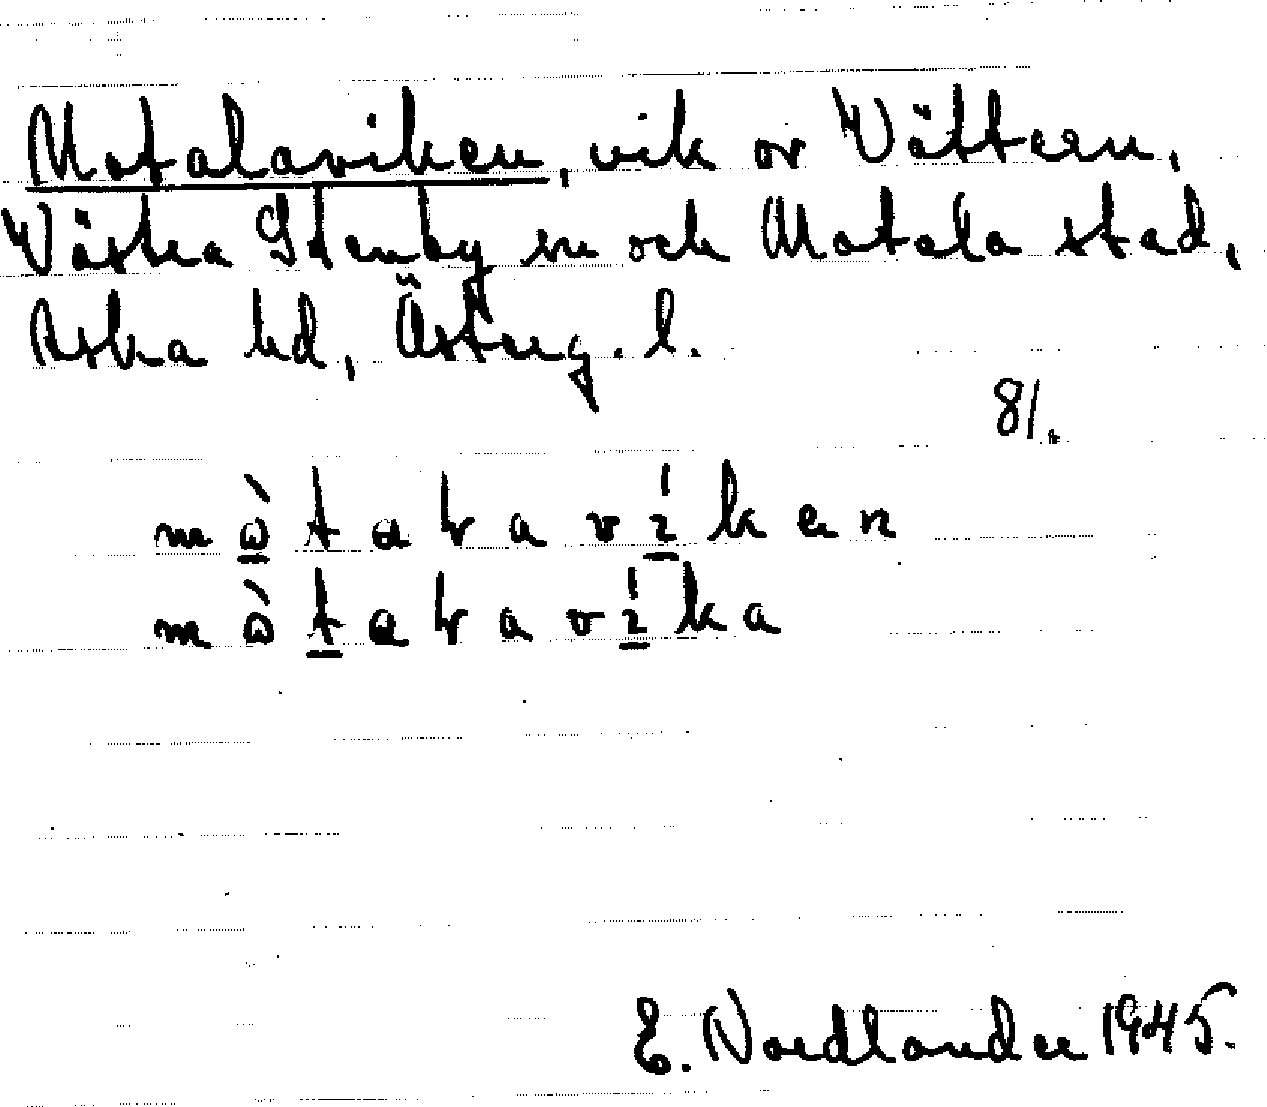 Motalaviken, vik av Vättern,
Västra Stenby sn och Motala stad,
Aska hd, Österg. l.
81.
mὼtaɫavíken
mὼtaɫavíka
E. Nordlander 1945.